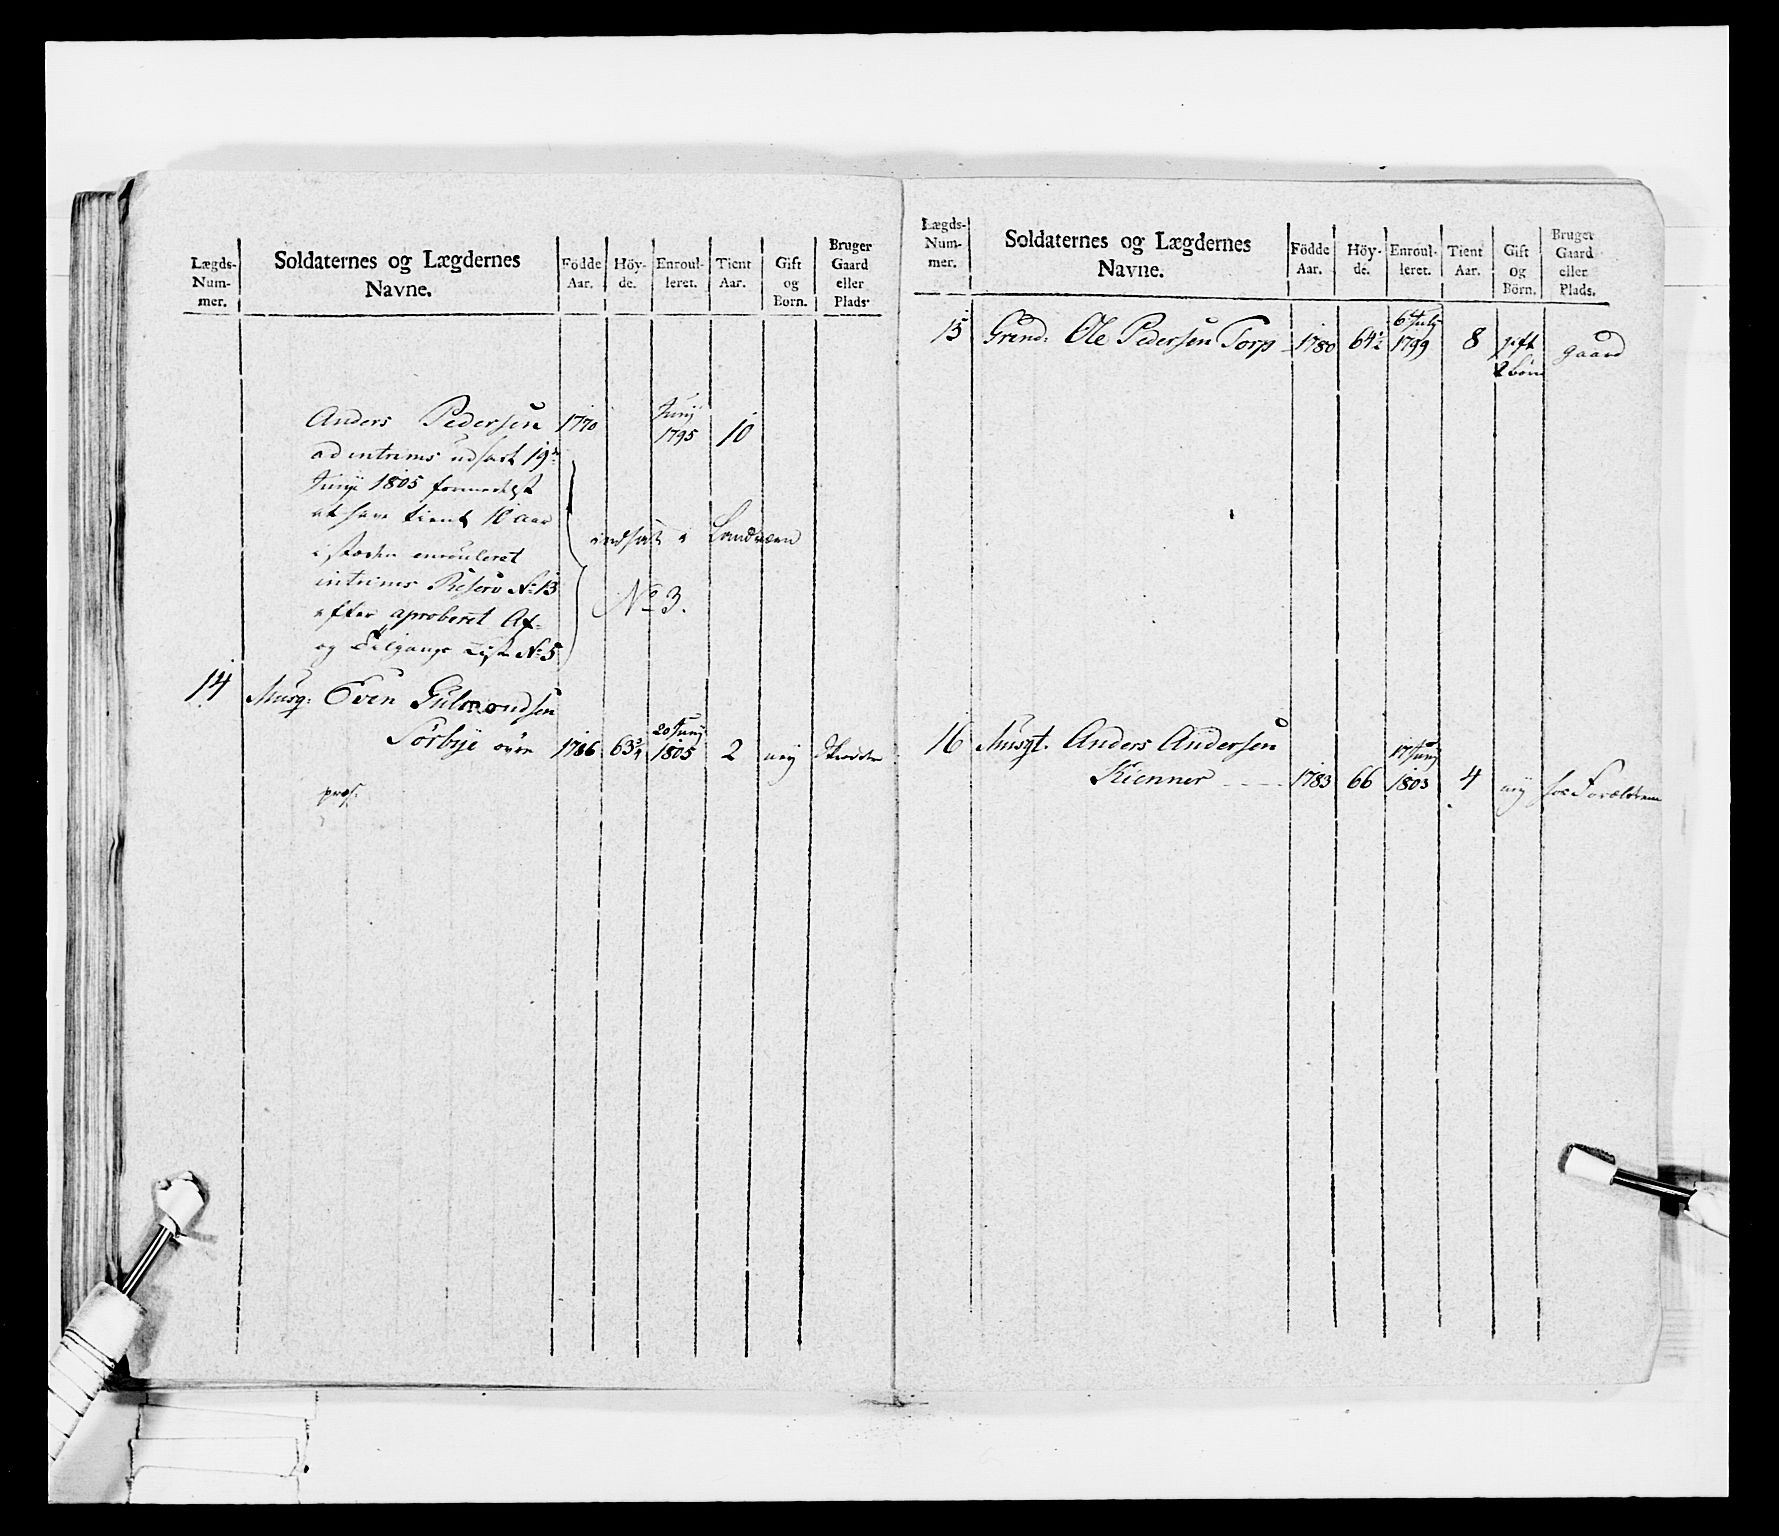 Lægds-Num-mer. | Soldaternes og Lægdernes Navne. | Födde Aar. | Höy-de. | Enroul-leret. | Tient Aar. | Gift og Børn. | Bruger Gaard eller Plads.
Anders Pedersen 1770 Junij 1795 10
ad intrims udsatt 19de
Junij 1805 formedelst
at have tient 10 aar
i stæden enrouleret
intrims Reserv No 13
efter aproberet Af-
og Tilgangs List No 5
indsat i Landværn
No 3.
14 Musq: Even Gulmundsen
Sörbye øvre 1786 63 3/4 20 Junij 1805 2 nej
pros:
Lægds-Num-mer. | Soldaternes og Lægdernes Navne. | Födde Aar. | Höy-de. | Enroul-leret. | Tient Aar. | Gift og Börn. | Bruger Gaard eller Plads.
15 Grend: Ole Pedersen Torp 1780 64 1/2 6 July 1799 8 gift 2 börn gaard
16 Musqt. Anders Andersen
Kienner 1783 66 17 Junij 1803 4 nej hos Forældrene